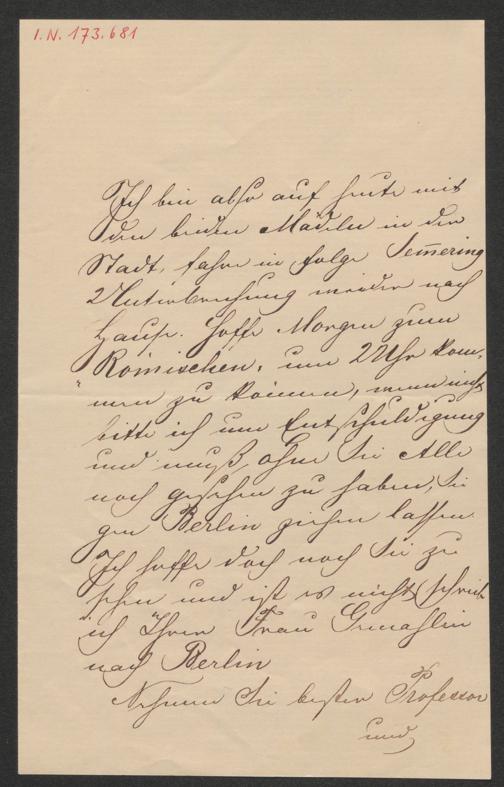 I. N. 173.681
Ich bin also auf heute mit
den beiden Mädeln in der
Stadt, fahre in folge Sem̅ering
Unterbrechung wieder nach
Hause. Hoffe Morgen zum
„Römischen" um 2 Uhr kom„
men zu können, wenn nicht
bitte ich um Entschuldigung
und muß, ohne Sie Alle
noch gesehen zu haben, Sie
gen Berlin ziehen lassen.
Ich hoffe doch noch Sie zu
sehen und ist es nicht, schreib
ich Ihrer Frau Gemahlin
nach Berlin
Nehmen Sie bester Professor
und